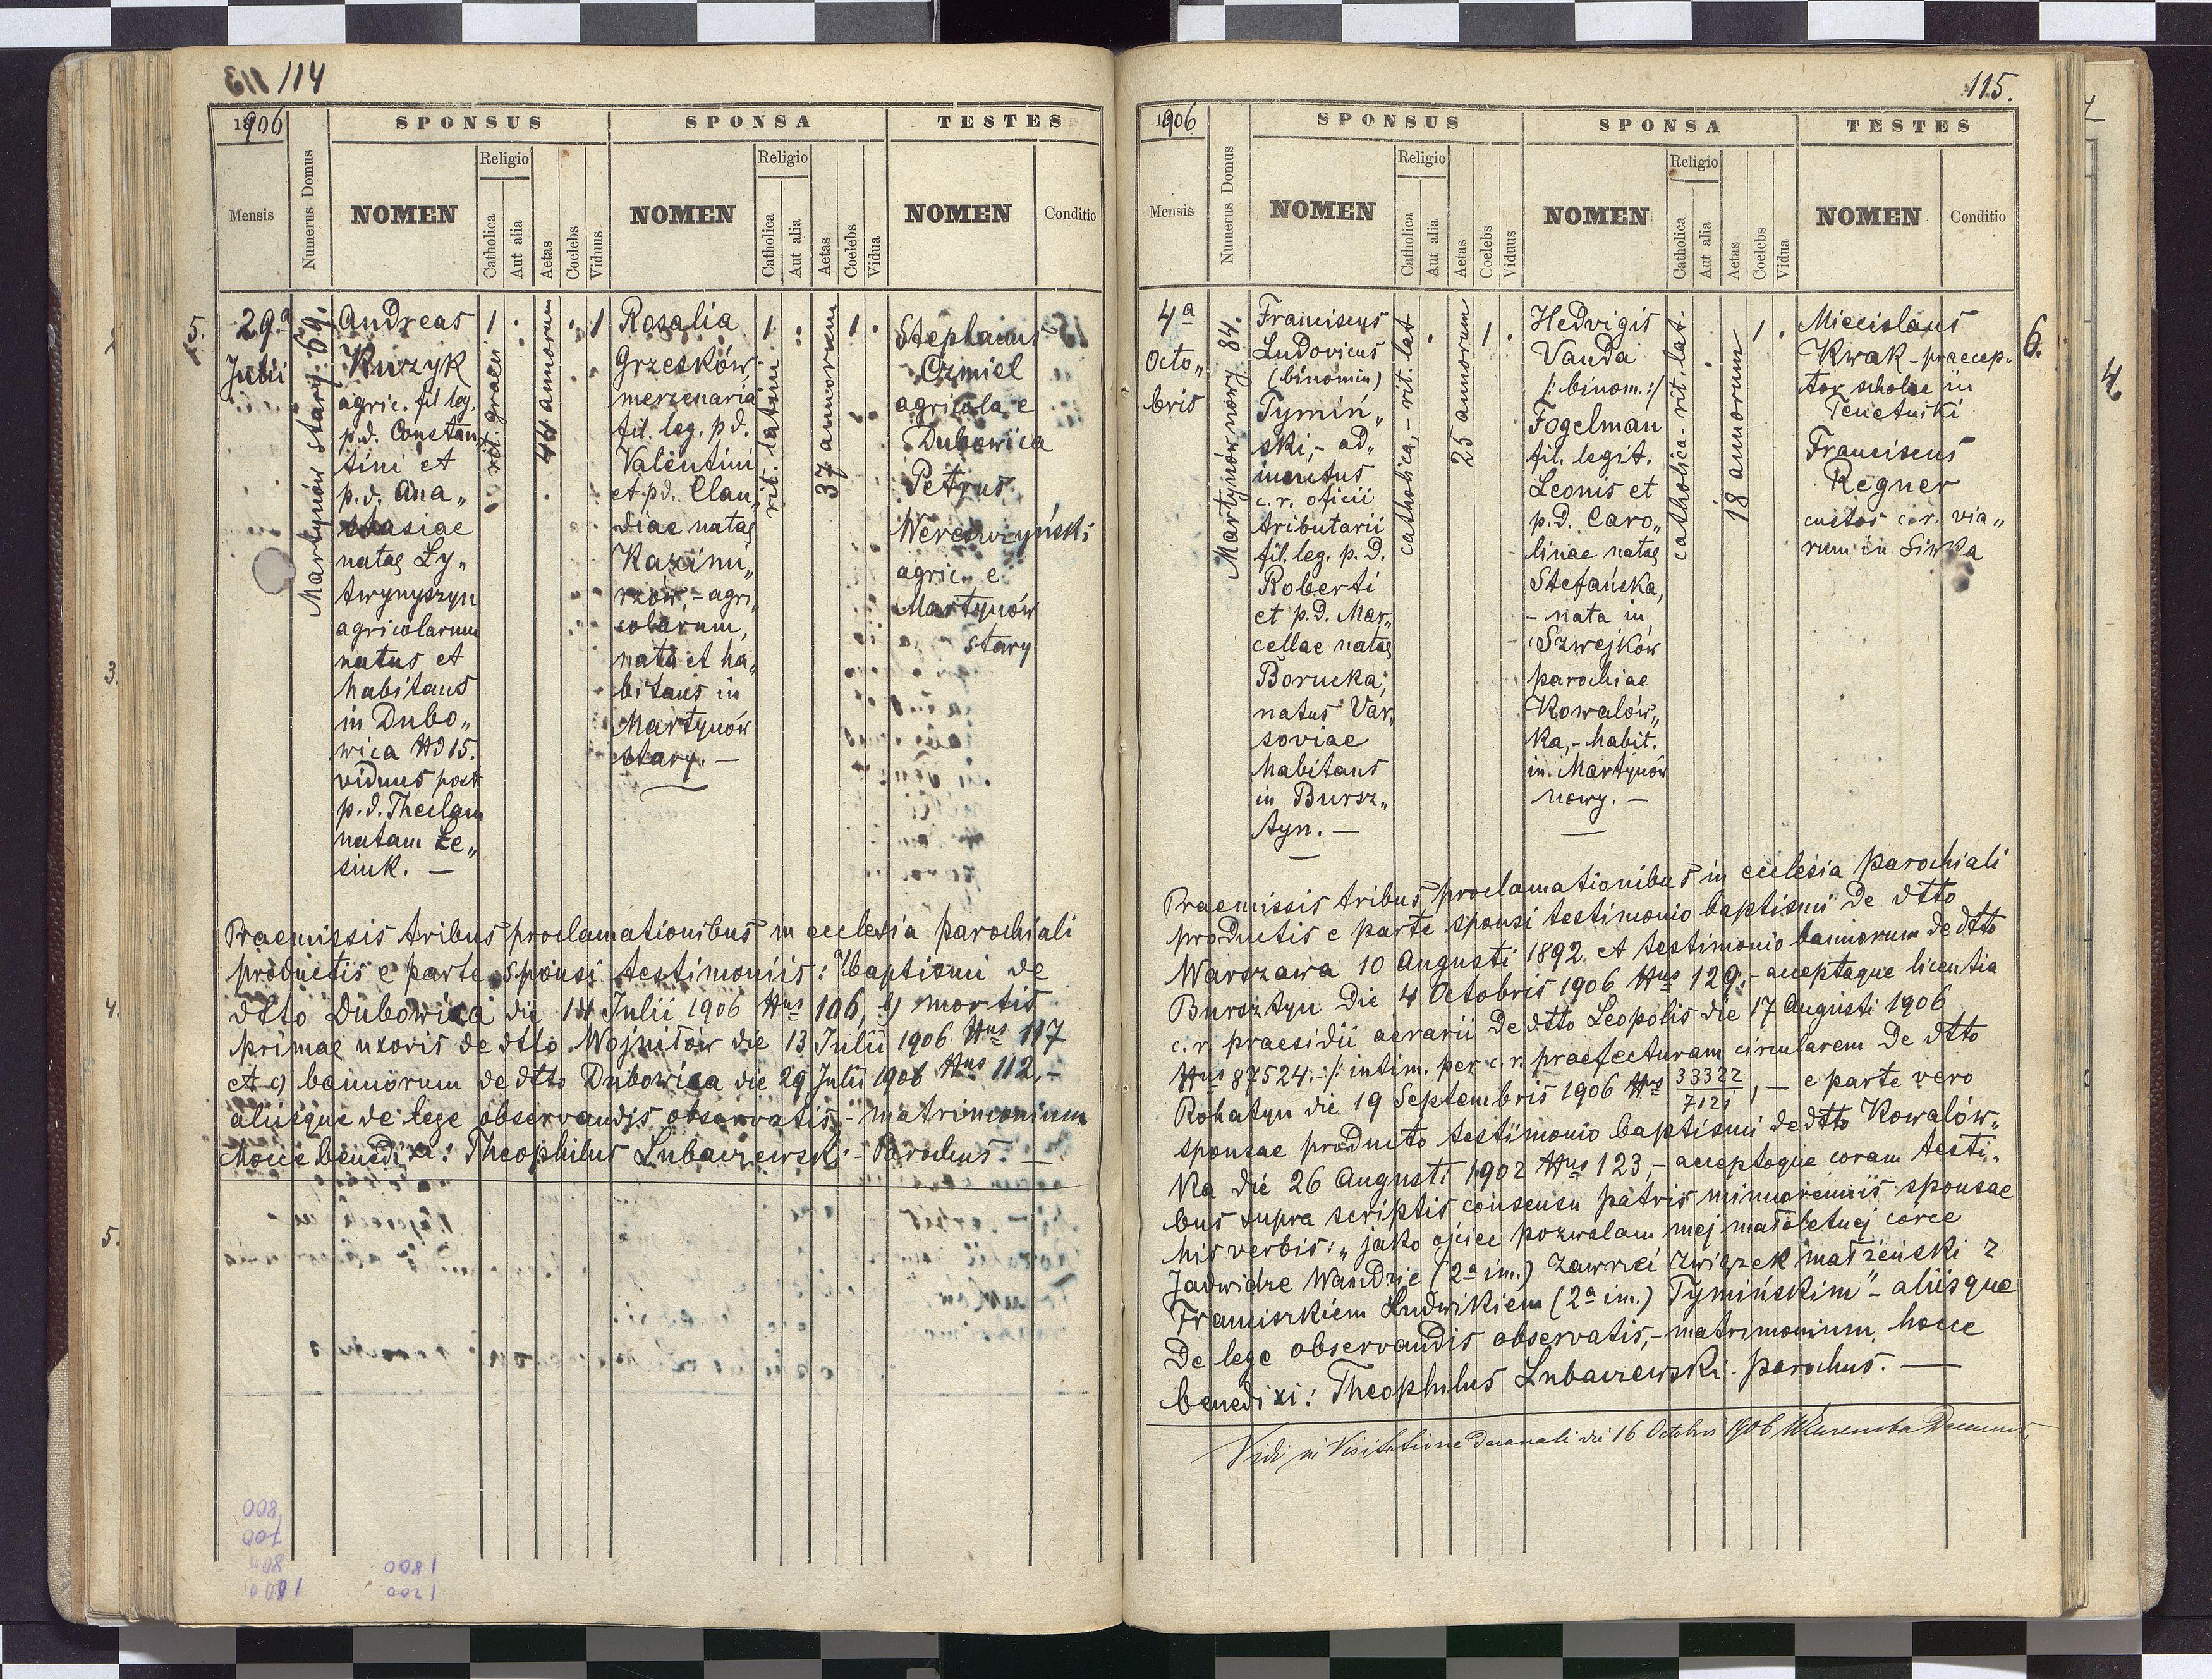 114
1906
SPONSUS
SPONSA
TESTES
Mensis
Numerus Domus
NOMEN
Religio
Catholica
Aut alia
Aetas
Coelebs
Viduus
NOMEN
Religio
Catholica
Aut alia
Aetas
Coelebs
Vidua
NOMEN
Conditio
5.
29ª
Julii
Martynów stary. 69.
Andreas
Kuzyk
agric. fil leg.
p.d. Constan„
tini et
p.d. Ana„
stasiae
natae Ly„
twynyszyn
agricolarum
natus et
habitans
in Dubo„
wica Nd 15.
viduus post
p.d. Theclam
natam Le„
siuk. —
1
rit. graeci
44 annorum
1
Rozalia
Grzesków,
mercenaria
fil. leg. p.d.
Valentini
et p.d. Clau„
diae natae
Kazimi„
rzów, - agri„
colarum,
nata et ha„
bitans in
Martynów
stary. —
1
rit. latini
37 annorum
1
Stephanus
Czmiel
agricola e
Dubowica
Petrus
Wereszczyński
agric. e
Martynów
stary
Praemissis tribus proclamationibus in ecclesia parochiali
productis e parte sponsi testimoniis: a) baptismi de
dtto Dubowica die 14 Julii 1906 Nus 106, b) mortis
primae uxoris de dtto Wojniłów die 13 Julii 1906 Nus 117
et c) bannorum de dtto Dubowica die 29 Julii 1906 Nus 112, -
aliisque de lege observandis observatis - matrimonium
hocce benedixi: Theophilus Lubaczewski - Parochus. —
115.
1906
SPONSUS
SPONSA
TESTES
Mensis
Numerus Domus
NOMEN
Religio
Catholica
Aut alia
Aetas
Coelebs
Viduus
NOMEN
Religio
Catholica
Aut alia
Aetas
Coelebs
Vidua
NOMEN
Conditio
4ª
Octo„
bris
Martynów nowy. 84.
Franciscus
Ludovicus
(binomin)
Tymiń„
ski, - ad„
iunctus
c. r. oficii
tributarii
fil. leg. p. d.
Roberti
et p.d. Mar„
cellae natae
Borucka,
natus Var„
soviae
habitans
in Bursz„
tyn. —
catholica, - rit. lat
25 annorum
1
Hedvigis
Vanda
/: binom.:/
Fogelman
fil. legit.
Leonis et
p.d. Caro„
linae natae
Stefańska,
- nata in
Szwejków
parochiae
Kowalów„
ka, - habit.
in Martynów
nowy. —
catholica - rit. lat.
18 annorum
1
Miecislaus
Kwak - praecep„
tor scholae in
Tenetniki
Franciscus
Regner
custos c. r. via„
rum in Siwka
6.
Praemissis tribus proclamationibus in ecclesia parochiali
productis e parte sponsi testimonio baptismi de dtto
Warszawa 10 Augusti 1892 et testimonio bannorum de dtto
Bursztyn die 4 Octobris 1906 Nus 129. - acceptaque licentia
c. r. praesidii aerarii de dtto Leopolis die 17 Augusti 1906
Nus 87524. - /: intim. per c. r. praefecturam circularem de dtto
Rohatyn die 19 Septembris 1906 Nus 33322/7121, - e parte vero
sponsae producto testimonio baptismi de dtto Kowalów„
ka die 26 Augusti 1902 Nus 123, - acceptoque coram testi„
bus supra scriptis consensu patris minorennis sponsae
his verbis: „jako ojciec pozwalam mej małoletniej córce
Jadwidze Wandzie (2ª im.) zawrzéć związek małżeński z
Franciszkiem Ludwikiem (2ª im.) Tymińskim" - aliisque
de lege observandis observatis, - matrimonium hocce
benedixi: Theophilus Lubaczewski - parochus. —
Vidi in Visitatione decanali die 16 Octobris 1906
3.
4.
5.
4.